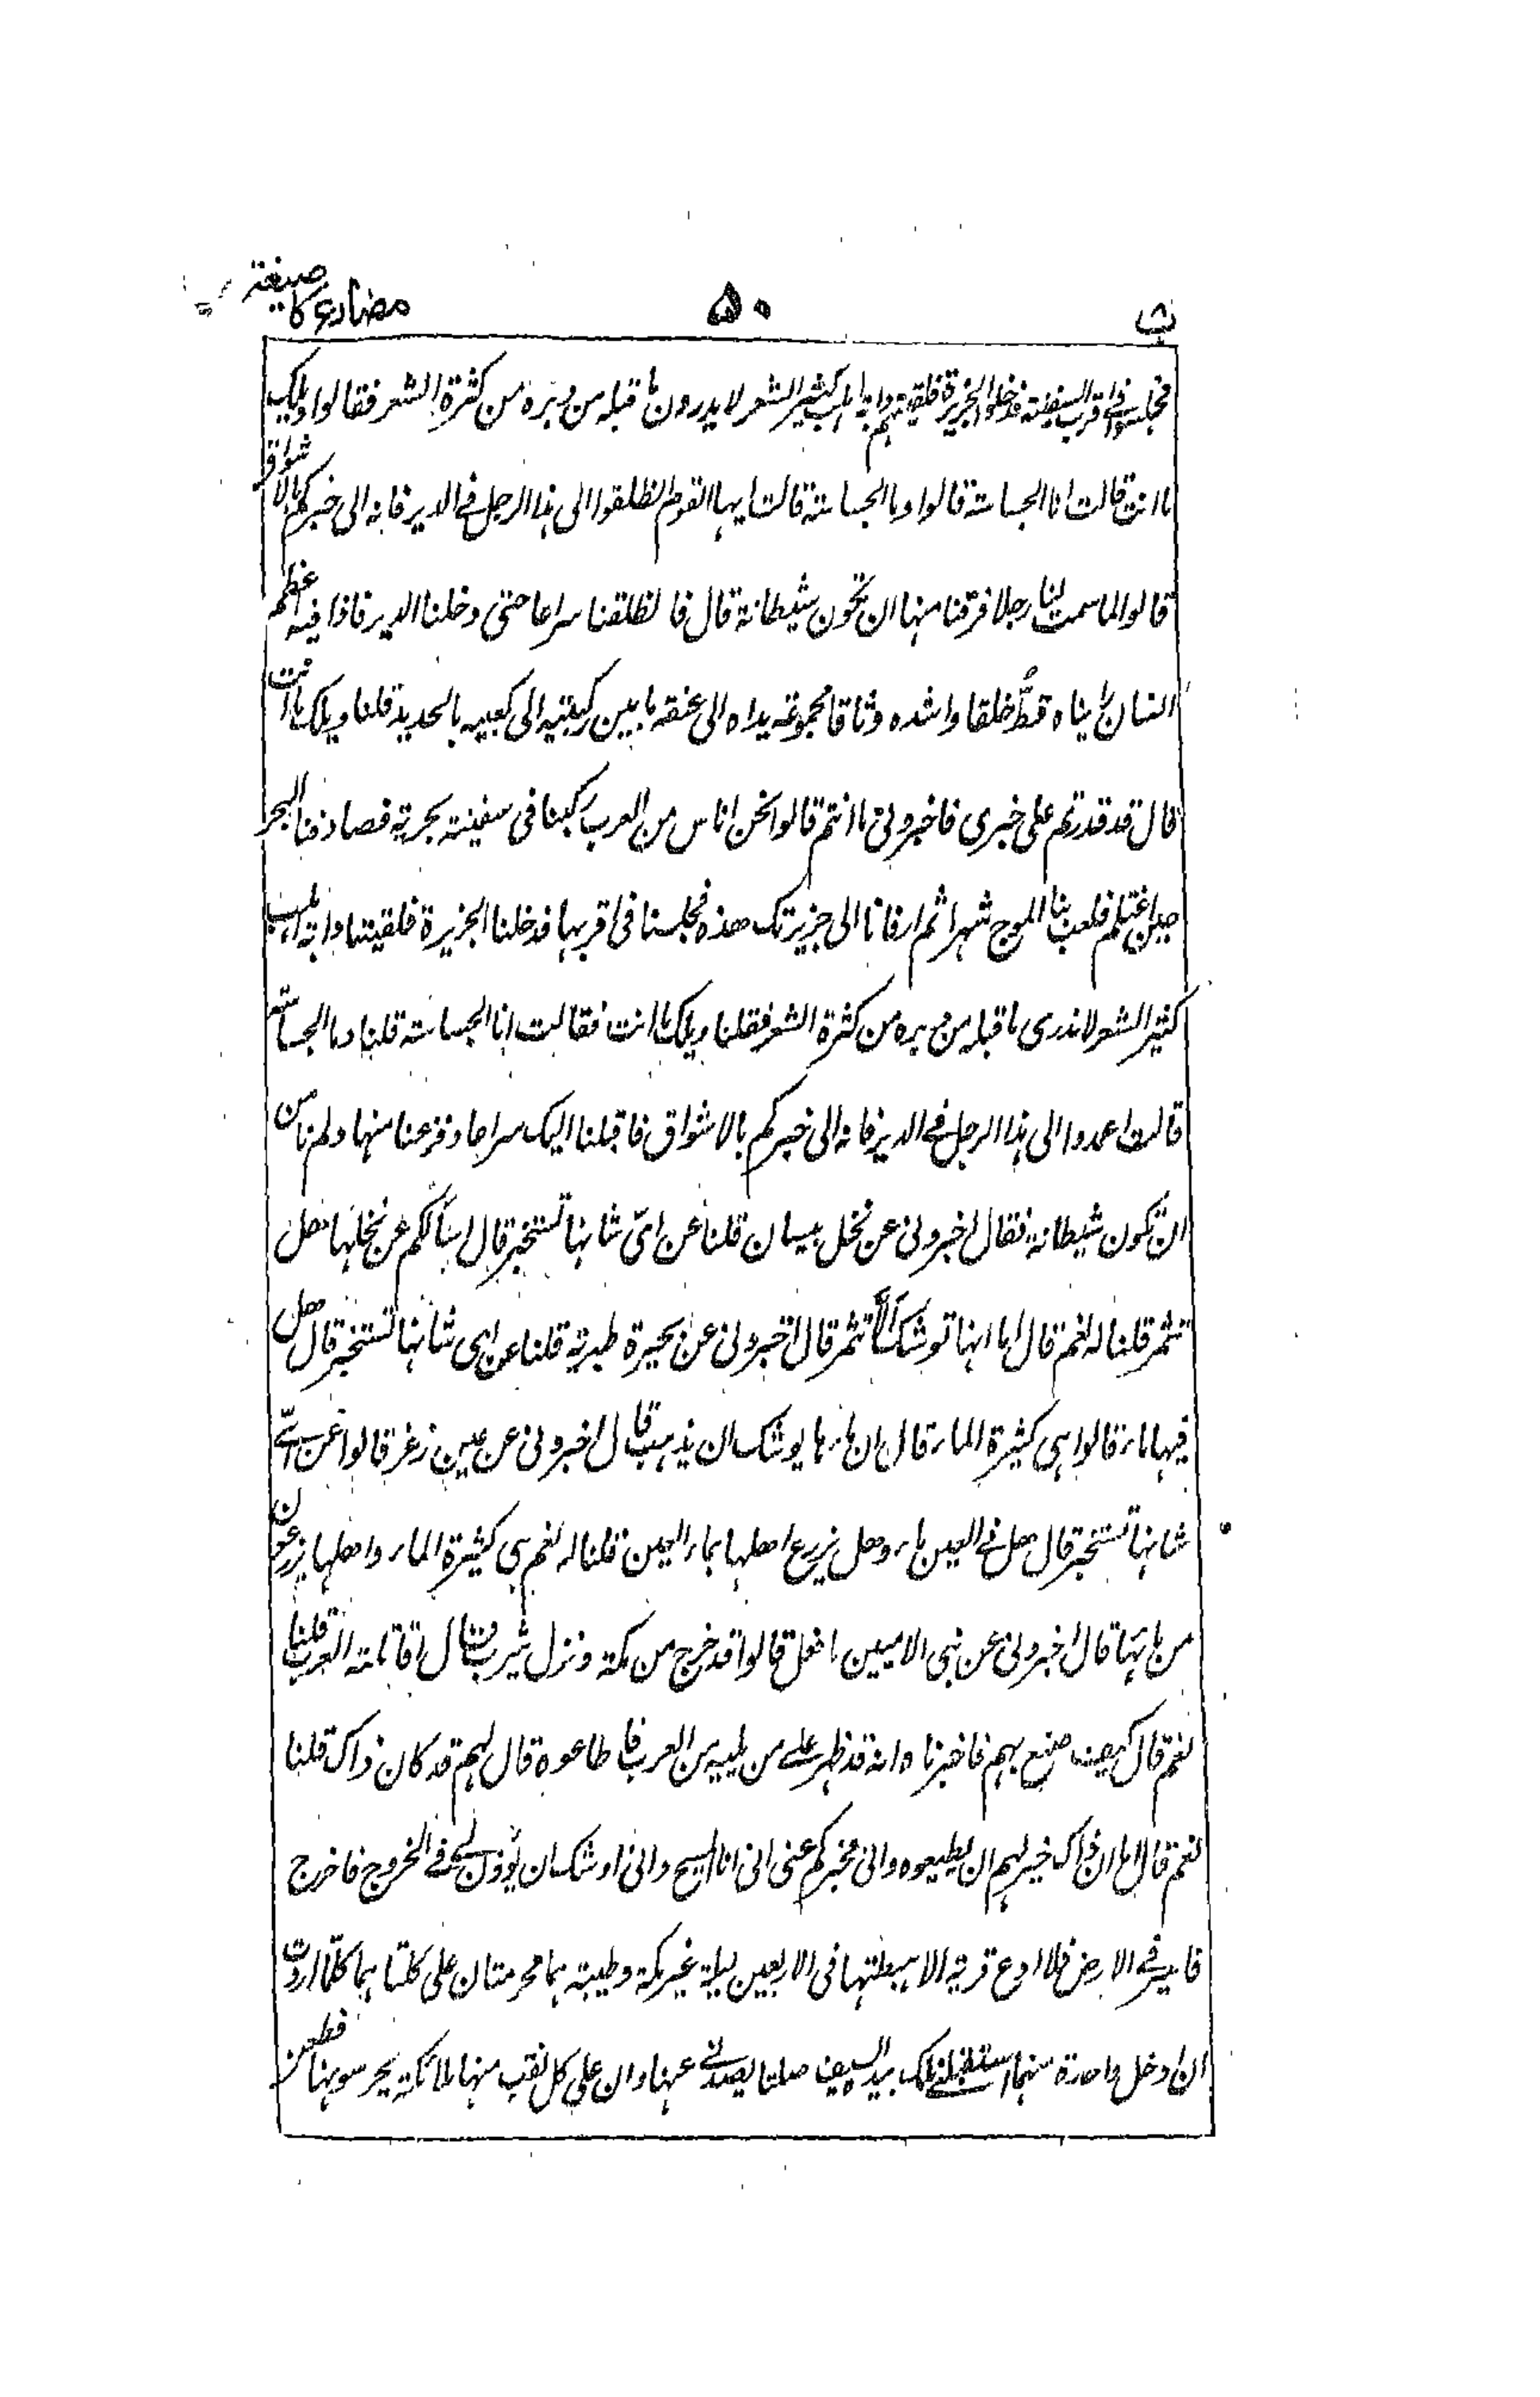 ث ۵۰ مضارع کا صیغہ
فجلسوا فی اقرب السفینة فدخلوا الجزیرة فلقیتهم دابة اہلب کثیر الشعر لا یدرون ما قبلہ من دبرہ من کثرة الشعر فقالوا ویلک
ما انت قالت انا الجساسة قالوا وما الجساسة قالت ایہا القوم انطلقوا الی ہذا الرجل فی الدیر فانہ الی خبرکم بالاشواق
قالوا لما سمت لنا رجلا فرقنا منہا ان تکون شیطانة قال فانطلقنا سراعا حتی دخلنا الدیر فاذا فیہ اعظم
انسان رایناہ قطُّ خلقا واشدہ وثاقا مجموعة یداہ الی عنقہ ما بین رکبتیہ الی کعبیہ بالحدید قلنا ویلک ما انت
قال قد قدرتم علی خبری فاخبرونی ما انتم قالوا نحن اناس من العرب رکبنا فی سفینة بحریة فصادفنا البحر
حین اغتلم فلعب بنا الموج شہرا ثم ارفانا الی جزیرتک ھذہ فجلسنا فی اقربہا فدخلنا الجزیرة فلقیتنا دابة اہلب
کثیر الشعر لا ندری ما قبلہ من دبرہ من کثرة الشعر فقلنا ویلک ما انت فقالت انا الجساسة قلنا وما الجساسة
قالت اعمدوا الی ہذا الرجل فی الدیر فانہ الی خبرکم بالاشواق فاقبلنا الیک سراعا وفزعنا منہا ولم نامن
ان تکون شیطانة فقال اخبرونی عن نخل بیسان قلنا عن ایّ شانہا تستخبر قال اسألکم عن نخلہا ھل
تثمر قلنا لہ نعم قال اما انہا توشک الّا تثمر قال اخبرونی عن بحیرة طبریة قلنا عن ای شانہا تستخبر قال ھل
فیہا ماء قالوا ہی کثیرة الماء قال ان ماءہا یوشک ان یذہب قال اخبرونی عن عین زغر قالوا عن ایّ
شانہا تستخبر قال ھل فی العین ماء وھل یزرع اھلہا بماء العین قلنا لہ نعم ہی کثیرة الماء واھلہا یزرعون
من مائہا قال اخبرونی عن نبی الامیین ما فعل قالوا قد خرج من مکة ونزل یثرب قال اقاتلہ العرب قلنا
نعم قال کیف صنع بہم فاخبرناہ انہ قد ظہر علی من یلیہ من العرب فاطاعوہ قال لہم قد کان ذاک قلنا
نعم قال اما ان ذاک خیر لہم ان یطیعوہ وانی مخبرکم عنی انی انا المسیح وانی اوشک ان یؤذن لی فی الخروج فاخرج
فاسیر فی الارض فلا ادع قریة الا ہبطتہا فی الاربعین لیلة غیر مکة وطیبة ہما محرمتان علی کلتاہما کلّما اردت
ان ادخل واحدة منہما استقبلنی ملک بیدہ السیف صلتا یصدنی عنہا وان علی کل نقب منہا ملائکة یحرسونہا فطعن